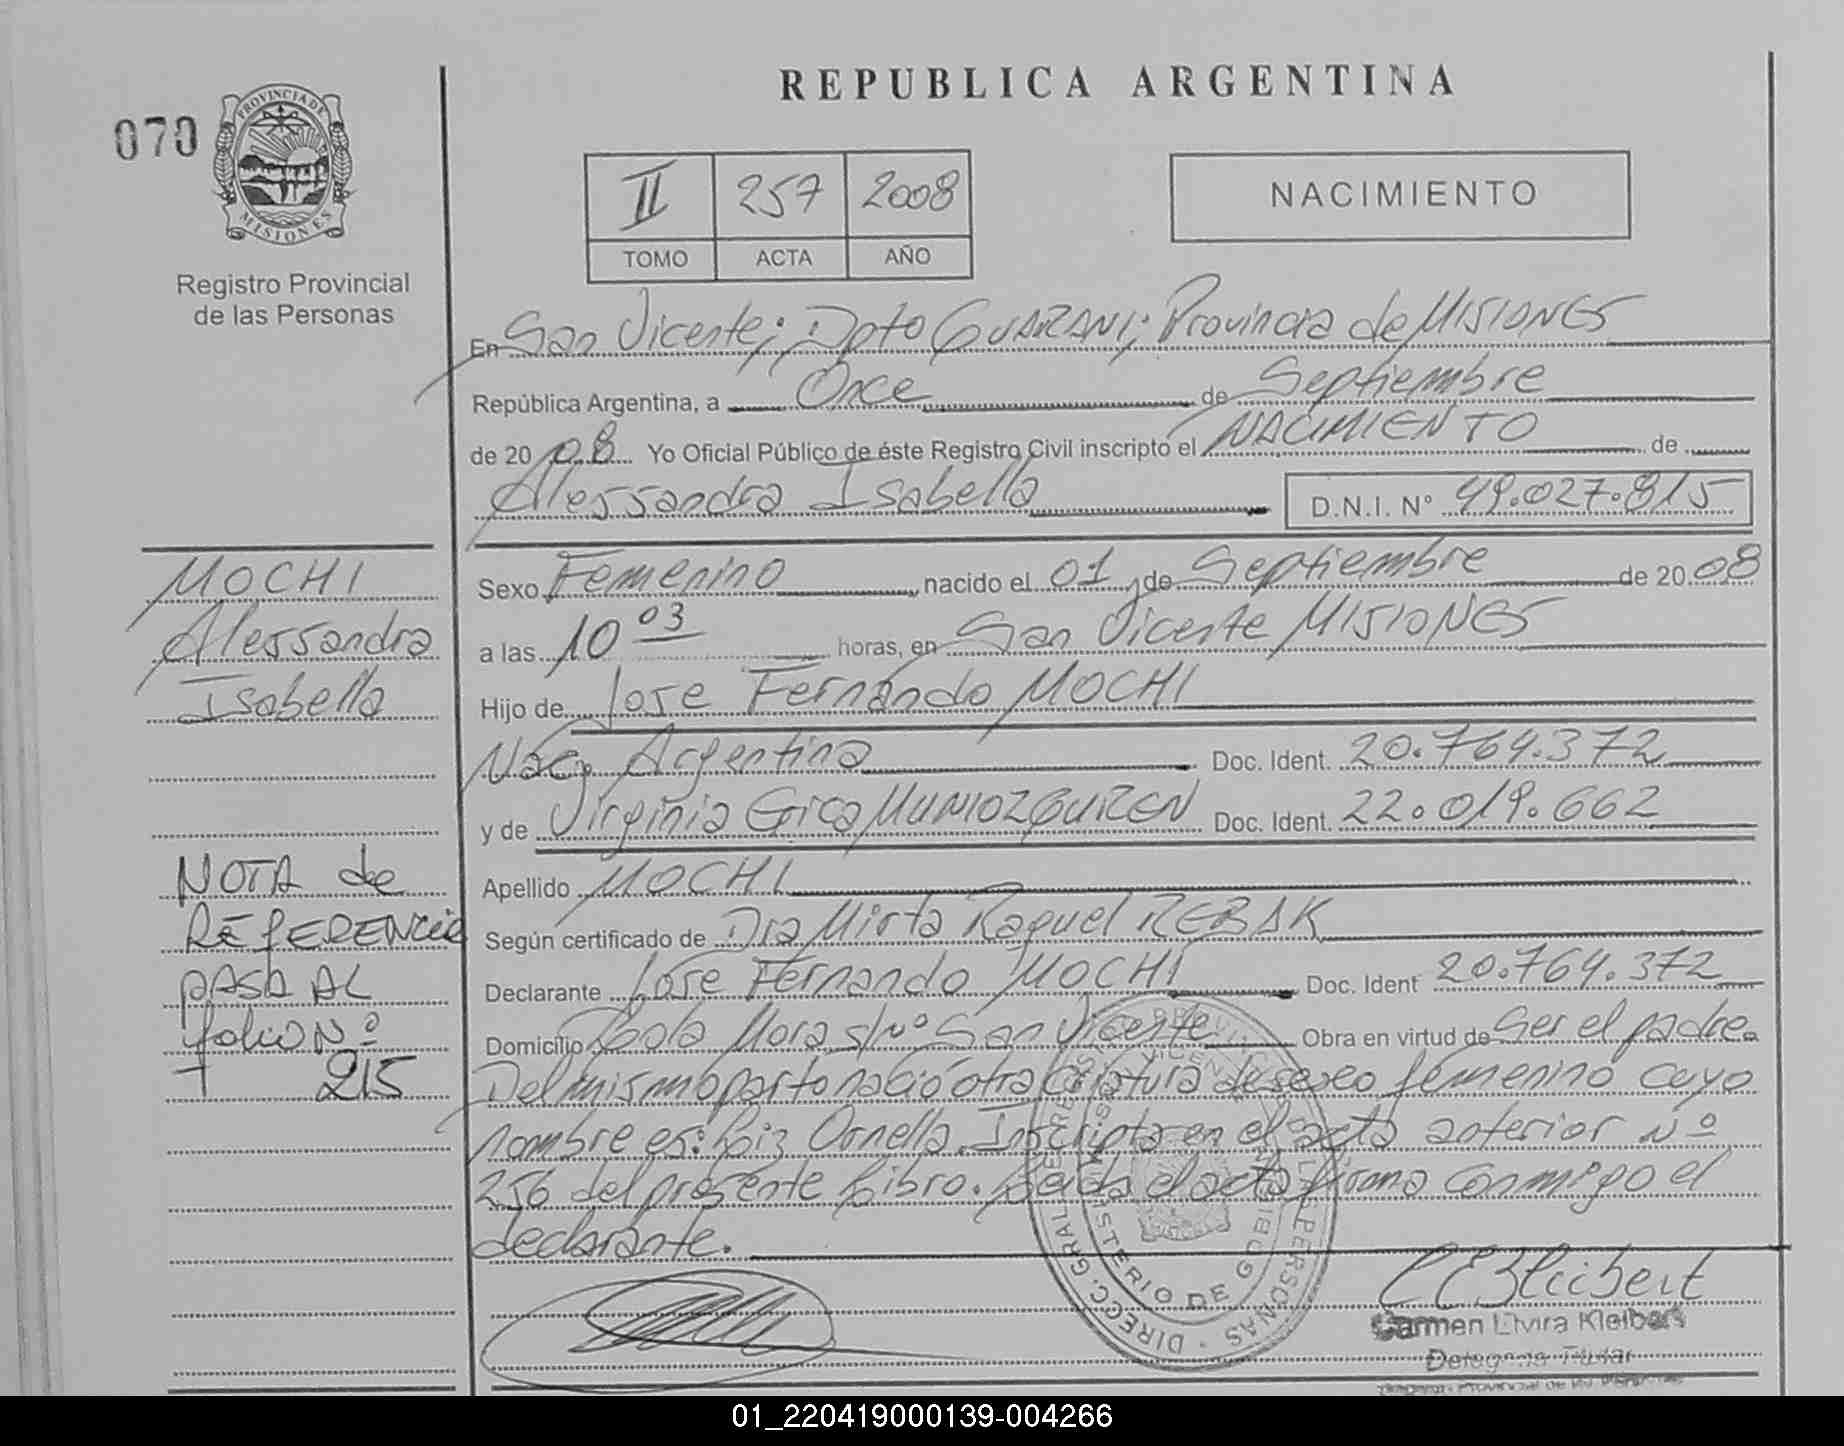 REPUBLICA ARGENTINA
070
PROVINCIA DE
MISIONES
Registro Provincial
de las Personas
II 257 2008
TOMO ACTA AÑO
NACIMIENTO
En San Vicente; Dpto GUARANI; Provincia de MISIONES
República Argentina, a Once de Septiembre
de 20 08 Yo Oficial Público de éste Registro Civil inscripto el NACIMIENTO de
Alessandra Isabella D.N.I. N° 49.027.815
Sexo Femenino nacido el 01 de Septiembre de 20 08
a las 10 03 horas, en San Vicente MISIONES
Hijo de Jose Fernando MOCHI
Nac. Argentina Doc. Ident. 20.764.372
y de Virginia Erica MUNIOZGUREN Doc. Ident. 22.019.662
Apellido MOCHI
Según certificado de Dra Mirta Raquel REBAK
Declarante Jose Fernando MOCHI Doc. Ident 20.764.372
Domicilio Paola Mora s/Nº San Vicente Obra en virtud de Ser el padre.
Del mismo parto nació otra criatura de sexo femenino cuyo
nombre es: Luz Ornella. Inscripta en el acta anterior Nº
256 del presente Libro. Leida el acta firma conmigo el
declarante.
MOCHI
Alessandra
Isabella
NOTA de
REFERENCIA
PASA AL
folio Nº
215
DIRECC. GRAL. PERSONAS
MINISTERIO DE GOBIERNO
Carmen Elvira Kleibert
Delegada Titular
01_220419000139-004266